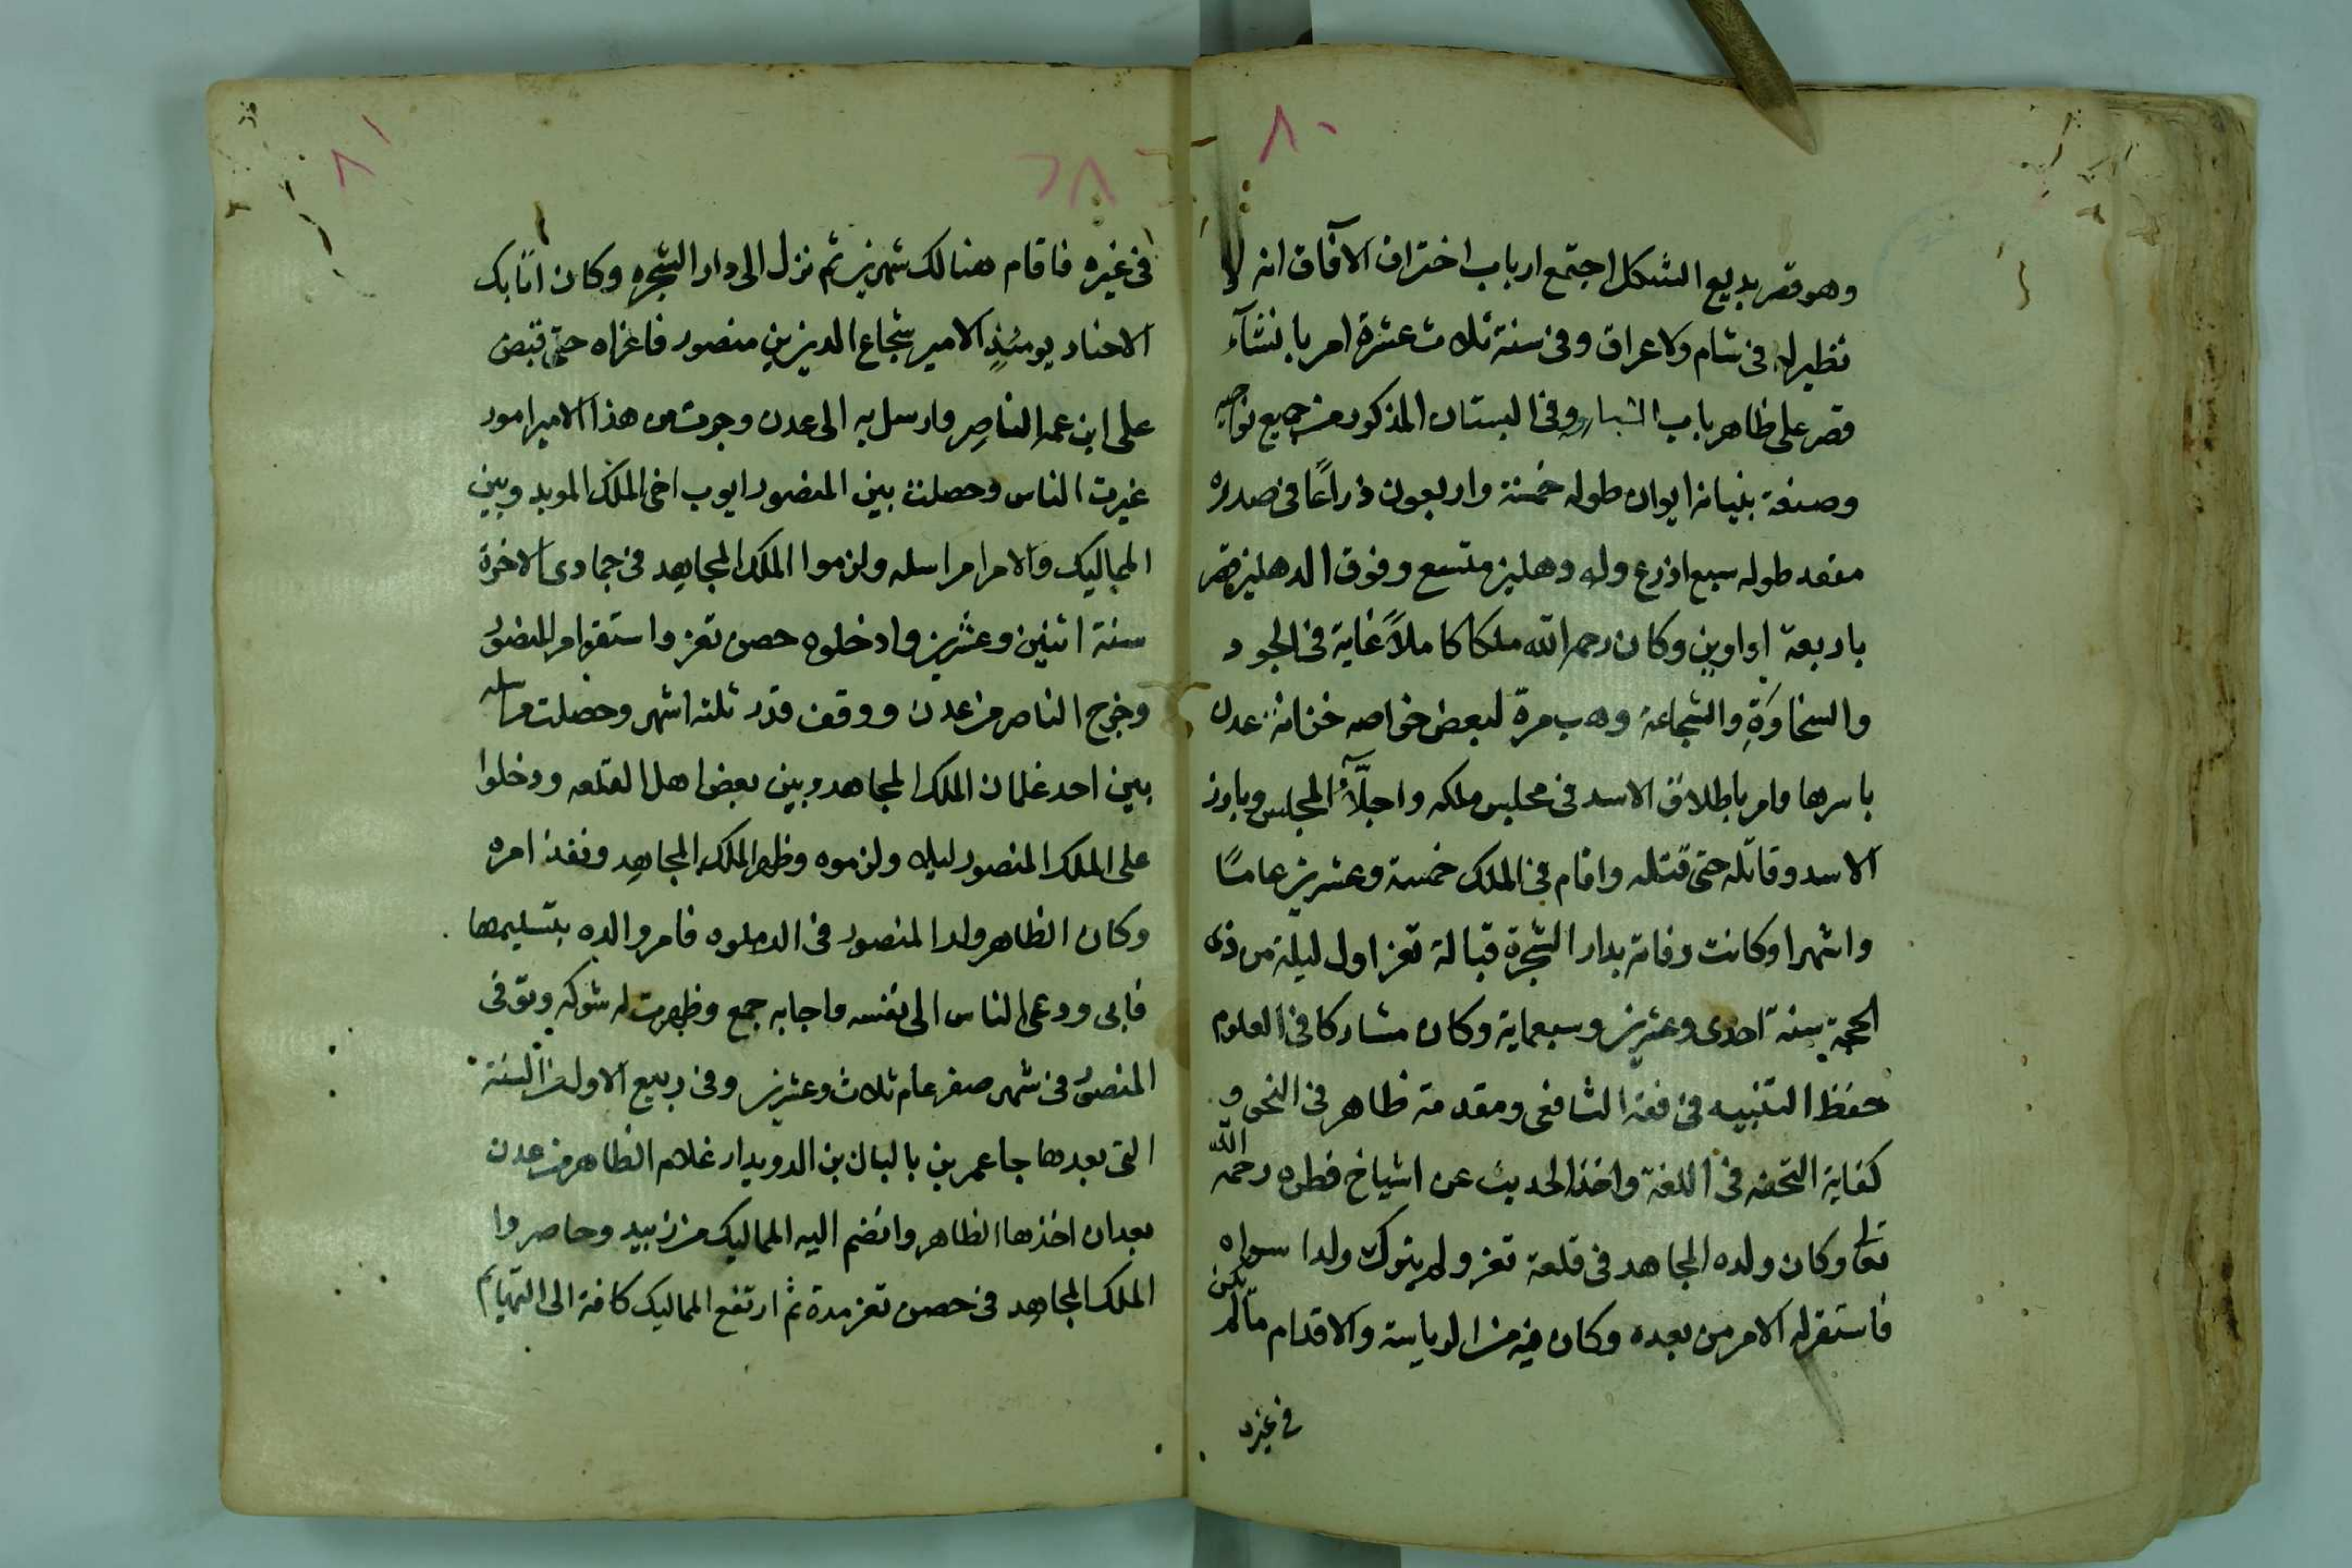 ٨٠
وهو قصر بديع الشكل اجتمع ارباب اختراق الآفاق انه لا
نظير له فى شام ولا عراق وفى سنة ثلاث عشرة امر بانشآء
قصر على ظاهر باب الشبارو وفى البستان المذكور من جميع نواحيه
وصنعة بنيانه ايوان طوله خمسة واربعون ذراعًا فى صدره
مقعد طوله سبع اذرع وله دهليز متسع وفوق الدهليز قصر
باربعة اواوين وكان رحمه الله ملكا كاملاً غاية فى الجود
والسخاوةِ والشجاعة وهب مرة لبعض خواصه خزانة عدن
باسرها وامر باطلاق الاسد فى مجلس ملكه واجلّآءُ المجلس وبارز
الاسد وقاتله حتى قتله واقام فى الملك خمسة وعشرين عامًا
واشهرا وكانت وفاته بدار الشجرة قبالة تعز اول ليلة من ذى
الحجة سنة احدى وعشرين وسبعماية وكان مشاركا فى العلوم
حفظ التنبيه فى فقه الشافعى ومقدمة ظاهر فى النحو و
كفاية التحفه فى اللغة واخذ الحديث عن اشياخ قطره رحمه الله
تعالى وكان ولده المجاهد فى قلعة تعز ولم يترك ولدا سواه
فاستقر له الامر من بعده وكان فيه من الرياسة والاقدام ما لم يكن
فى غيره
٨١
٨٢
فى غيره فاقام هنالك شهرين ثم نزل الى دار الشجره وكان اتابك
الاجناد يومئذٍ الامير شجاع الدين بن منصور فاغزاه حتى قبض
على ابن عمه الناصر وارسل به الى عدن وجرت من هذا الامير امور
غيرت الناس وحصلت بين المنصور ايوب اخى الملك المويد وبين
المماليك والامرا مراسله ولزموا الملك المجاهد فى جمادى الاخرة
سنة اثنين وعشرين وادخلوه حصن تعز واستقر امر المنصور
وخرج الناصر من عدن ووقف قدر ثلثه اشهر وحصلت مراسله
بين احد غلمان الملك المجاهد وبين بعض اهل القلعه ودخلوا
على الملك المنصور ليلا ولزموه وظهر الملك المجاهد ونفذ امره
وكان الظاهر ولد المنصور فى الدملوه فامر والده بتسليمها
فابى ودعى الناس الى نفسه واجابه جمع وظهرت له شوكه وتوفى
المنصور فى شهر صفر عام ثلاث وعشرين وفى ربيع الاول من السنة
التى بعدها جا عمر بن بالبال بن الدويدار غلام الظاهر من عدن
بعد ان اخذها الظاهر وانضم اليه المماليك من زبيد وحاصروا
الملك المجاهد فى حصن تعز مدة ثم ارتفع المماليك كافة الى التهايم